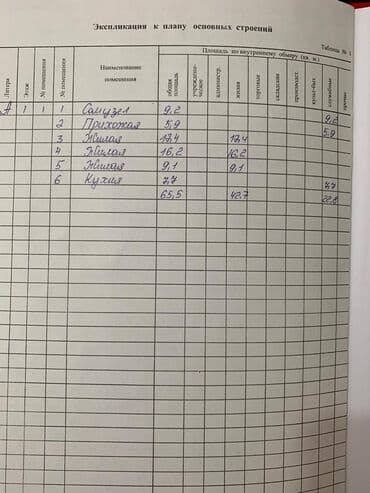 Экспликация к плану основных строений
Таблица № 1
Площадь по внутреннему обмеру (кв. м.)
Литера
Этаж
№ помещения
№ помещения
Наименование
помещения
общая
площадь
учрежден-
ческое
администр.
жилая
торговые
складские
производст.
культ-быт.
служебные
прочие
А 1 1 1 Санузел 9,2 9,2
2 Прихожая 5,9 5,9
3 Жилая 17,4 17,4
4 Жилая 16,2 16,2
5 Жилая 9,1 9,1
6 Кухня 7,7 7,7
65,5 42,7 22,8